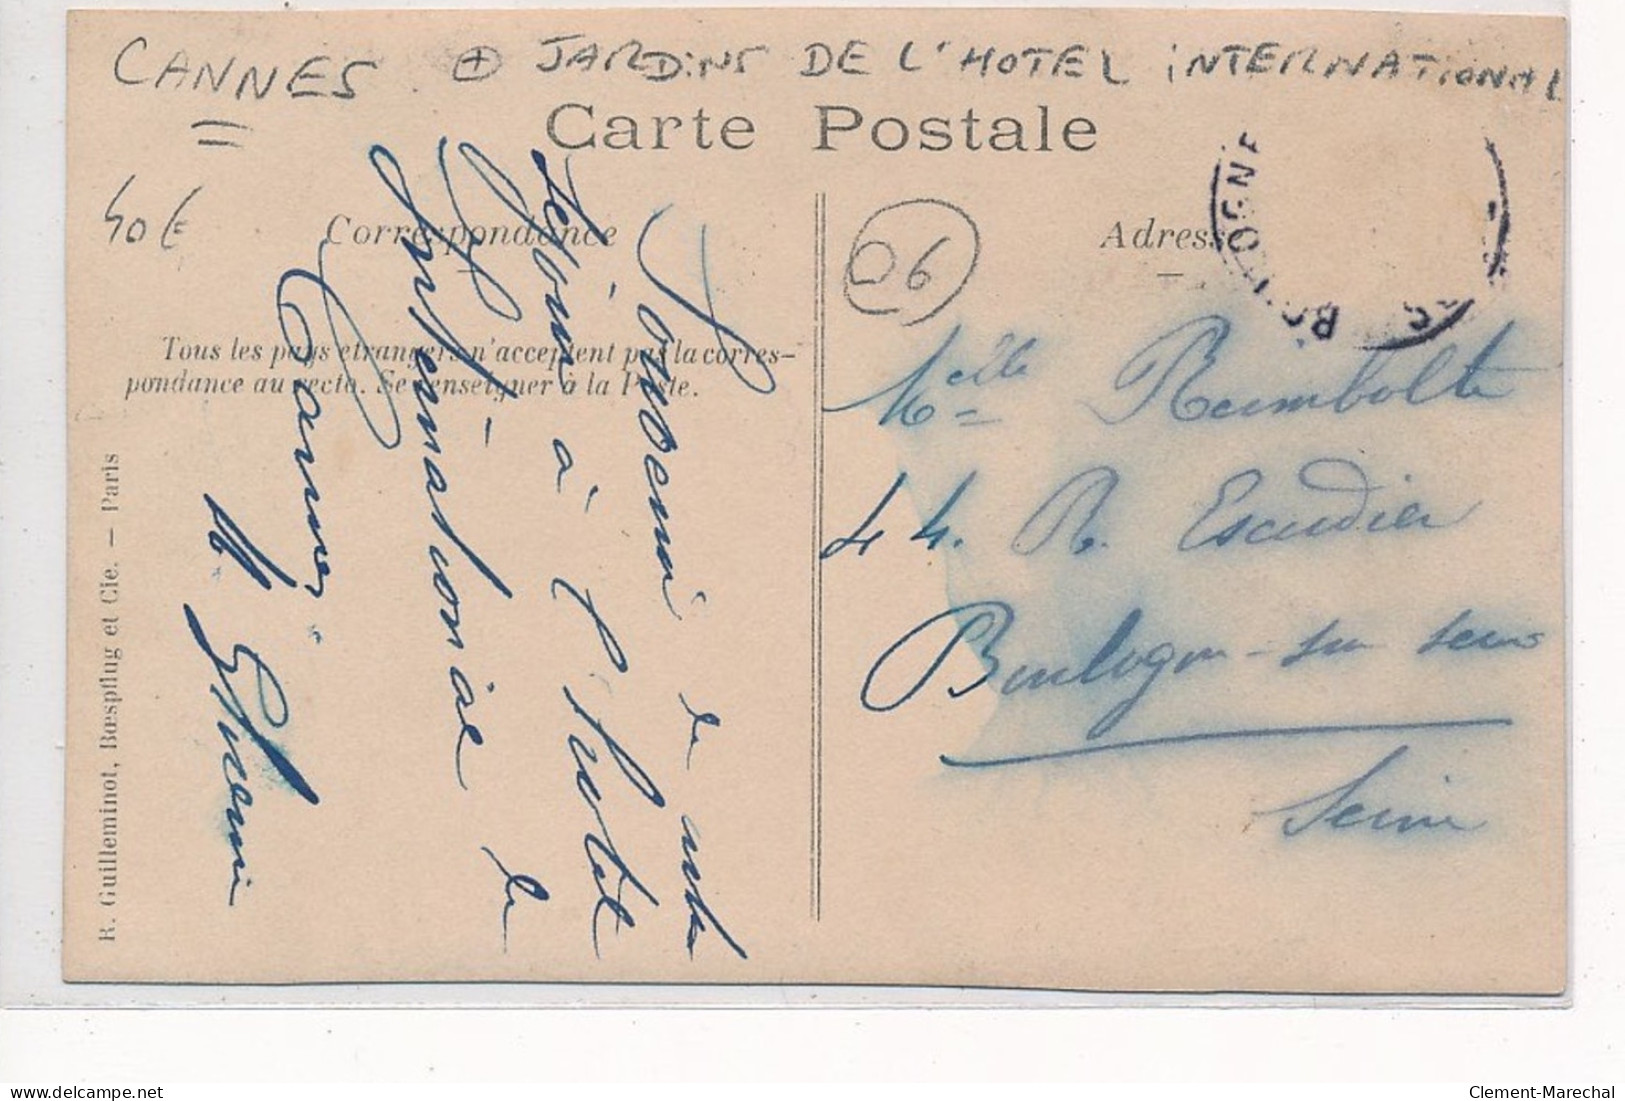 CANNES ⊕ JARDINS DE L'HOTEL INTERNATIONAL
Carte Postale
40€
Correspondance
06
Adresse
BOULOGNE
Tous les pays étrangers n'acceptent pas la corres-
pondance au recto. Se renseigner à la Poste.
R. Guilleminot, Bœspflug et Cie. — Paris
Souvenir de notre
séjour à l'hotel
International de
Cannes
Melle Rumbolte
44. R. Escudier
Boulogne-sur seine
Seine
delcampe.net
Clement-Marechal